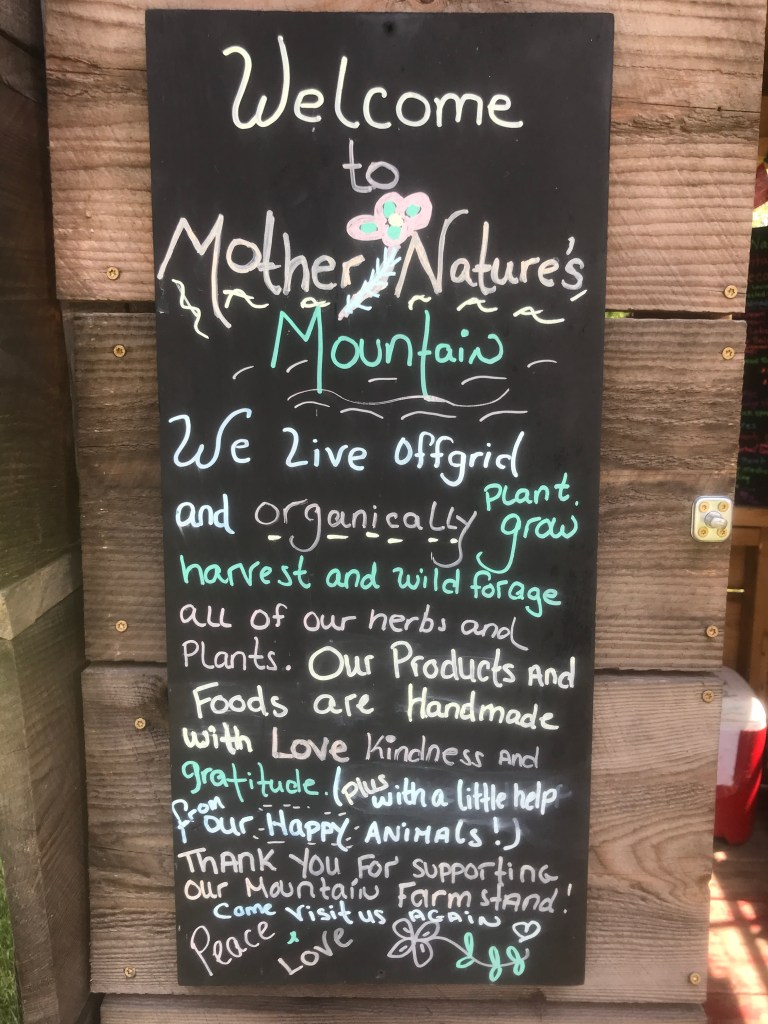 Welcome
to
Mother Nature's
Mountain
We Live Offgrid
and organically plant.
grow
harvest and wild forage
all of our herbs and
Plants. Our Products And
Foods are Handmade
with Love Kindness And
gratitude. (plus with a little help
from our Happy ANIMALS!)
THANK You For supporting
our Mountain Farm stand!
Come visit us AGAIN
Peace & Love